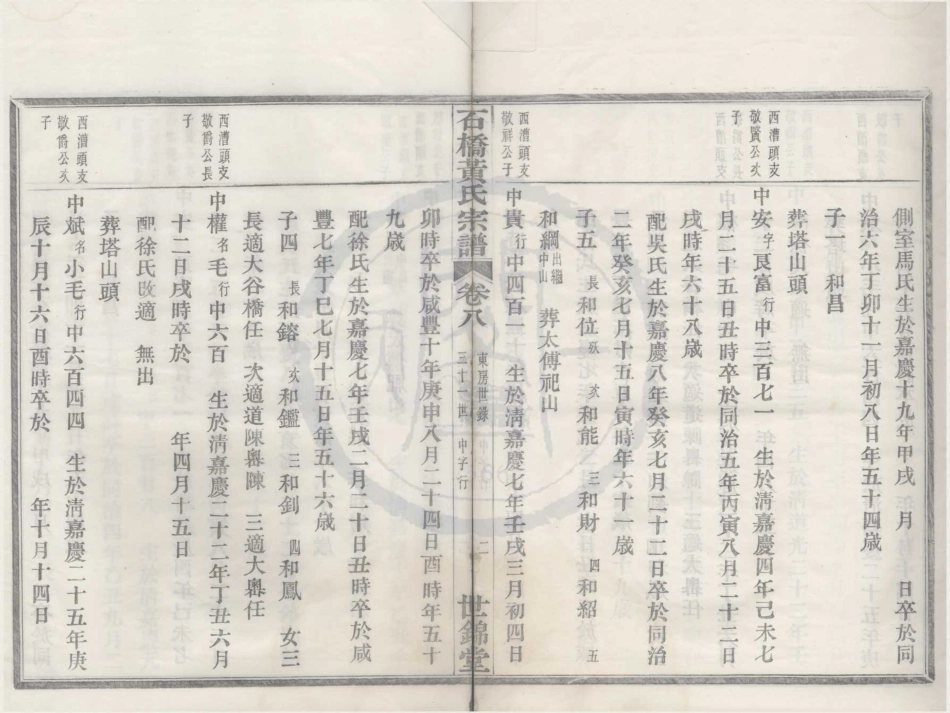 側室馬氏生於嘉慶十九年甲戌　年月　日卒於同
治六年丁卯十一月初八日年五十四歲
子一　和昌
葬塔山頭
西漕頭支
敬賢公次
子
中安字艮富行中三百七一　生於淸嘉慶四年己未七
月二十五日丑時卒於同治五年丙寅八月二十二日
戌時年六十八歲
配吳氏生於嘉慶八年癸亥七月二十二日卒於同治
二年癸亥七月十五日寅時年六十一歲
子五　長和位殀　次和能　三和財　四和紹　五
和綱出繼中山　葬太傅祀山
西漕頭支
敬鮮公子
中貴行中四百一　生於淸嘉慶七年壬戌三月初四日
石橋黃氏宗譜　卷八　東房世錄　三十一世　中字行　二　世錦堂
卯時卒於咸豐十年庚申八月二十四日酉時年五十
九歲
配徐氏生於嘉慶七年壬戌二月二十日丑時卒於咸
豐七年丁巳七月十五日年五十六歲
子四　長和鎔　次和鑑　三和釗　四和鳳　女三
長適大谷橋任　次適道陳嶴陳　三適大嶴任
西漕頭支
敬爵公長
子
中權名毛行中六百　生於淸嘉慶二十二年丁丑六月
十二日戌時卒於　年四月十五日
配徐氏改適　無出
葬塔山頭
西漕頭支
敬爵公次
子
中斌名小毛行中六百四四　生於淸嘉慶二十五年庚
辰十月十六日酉時卒於　年十月十四日